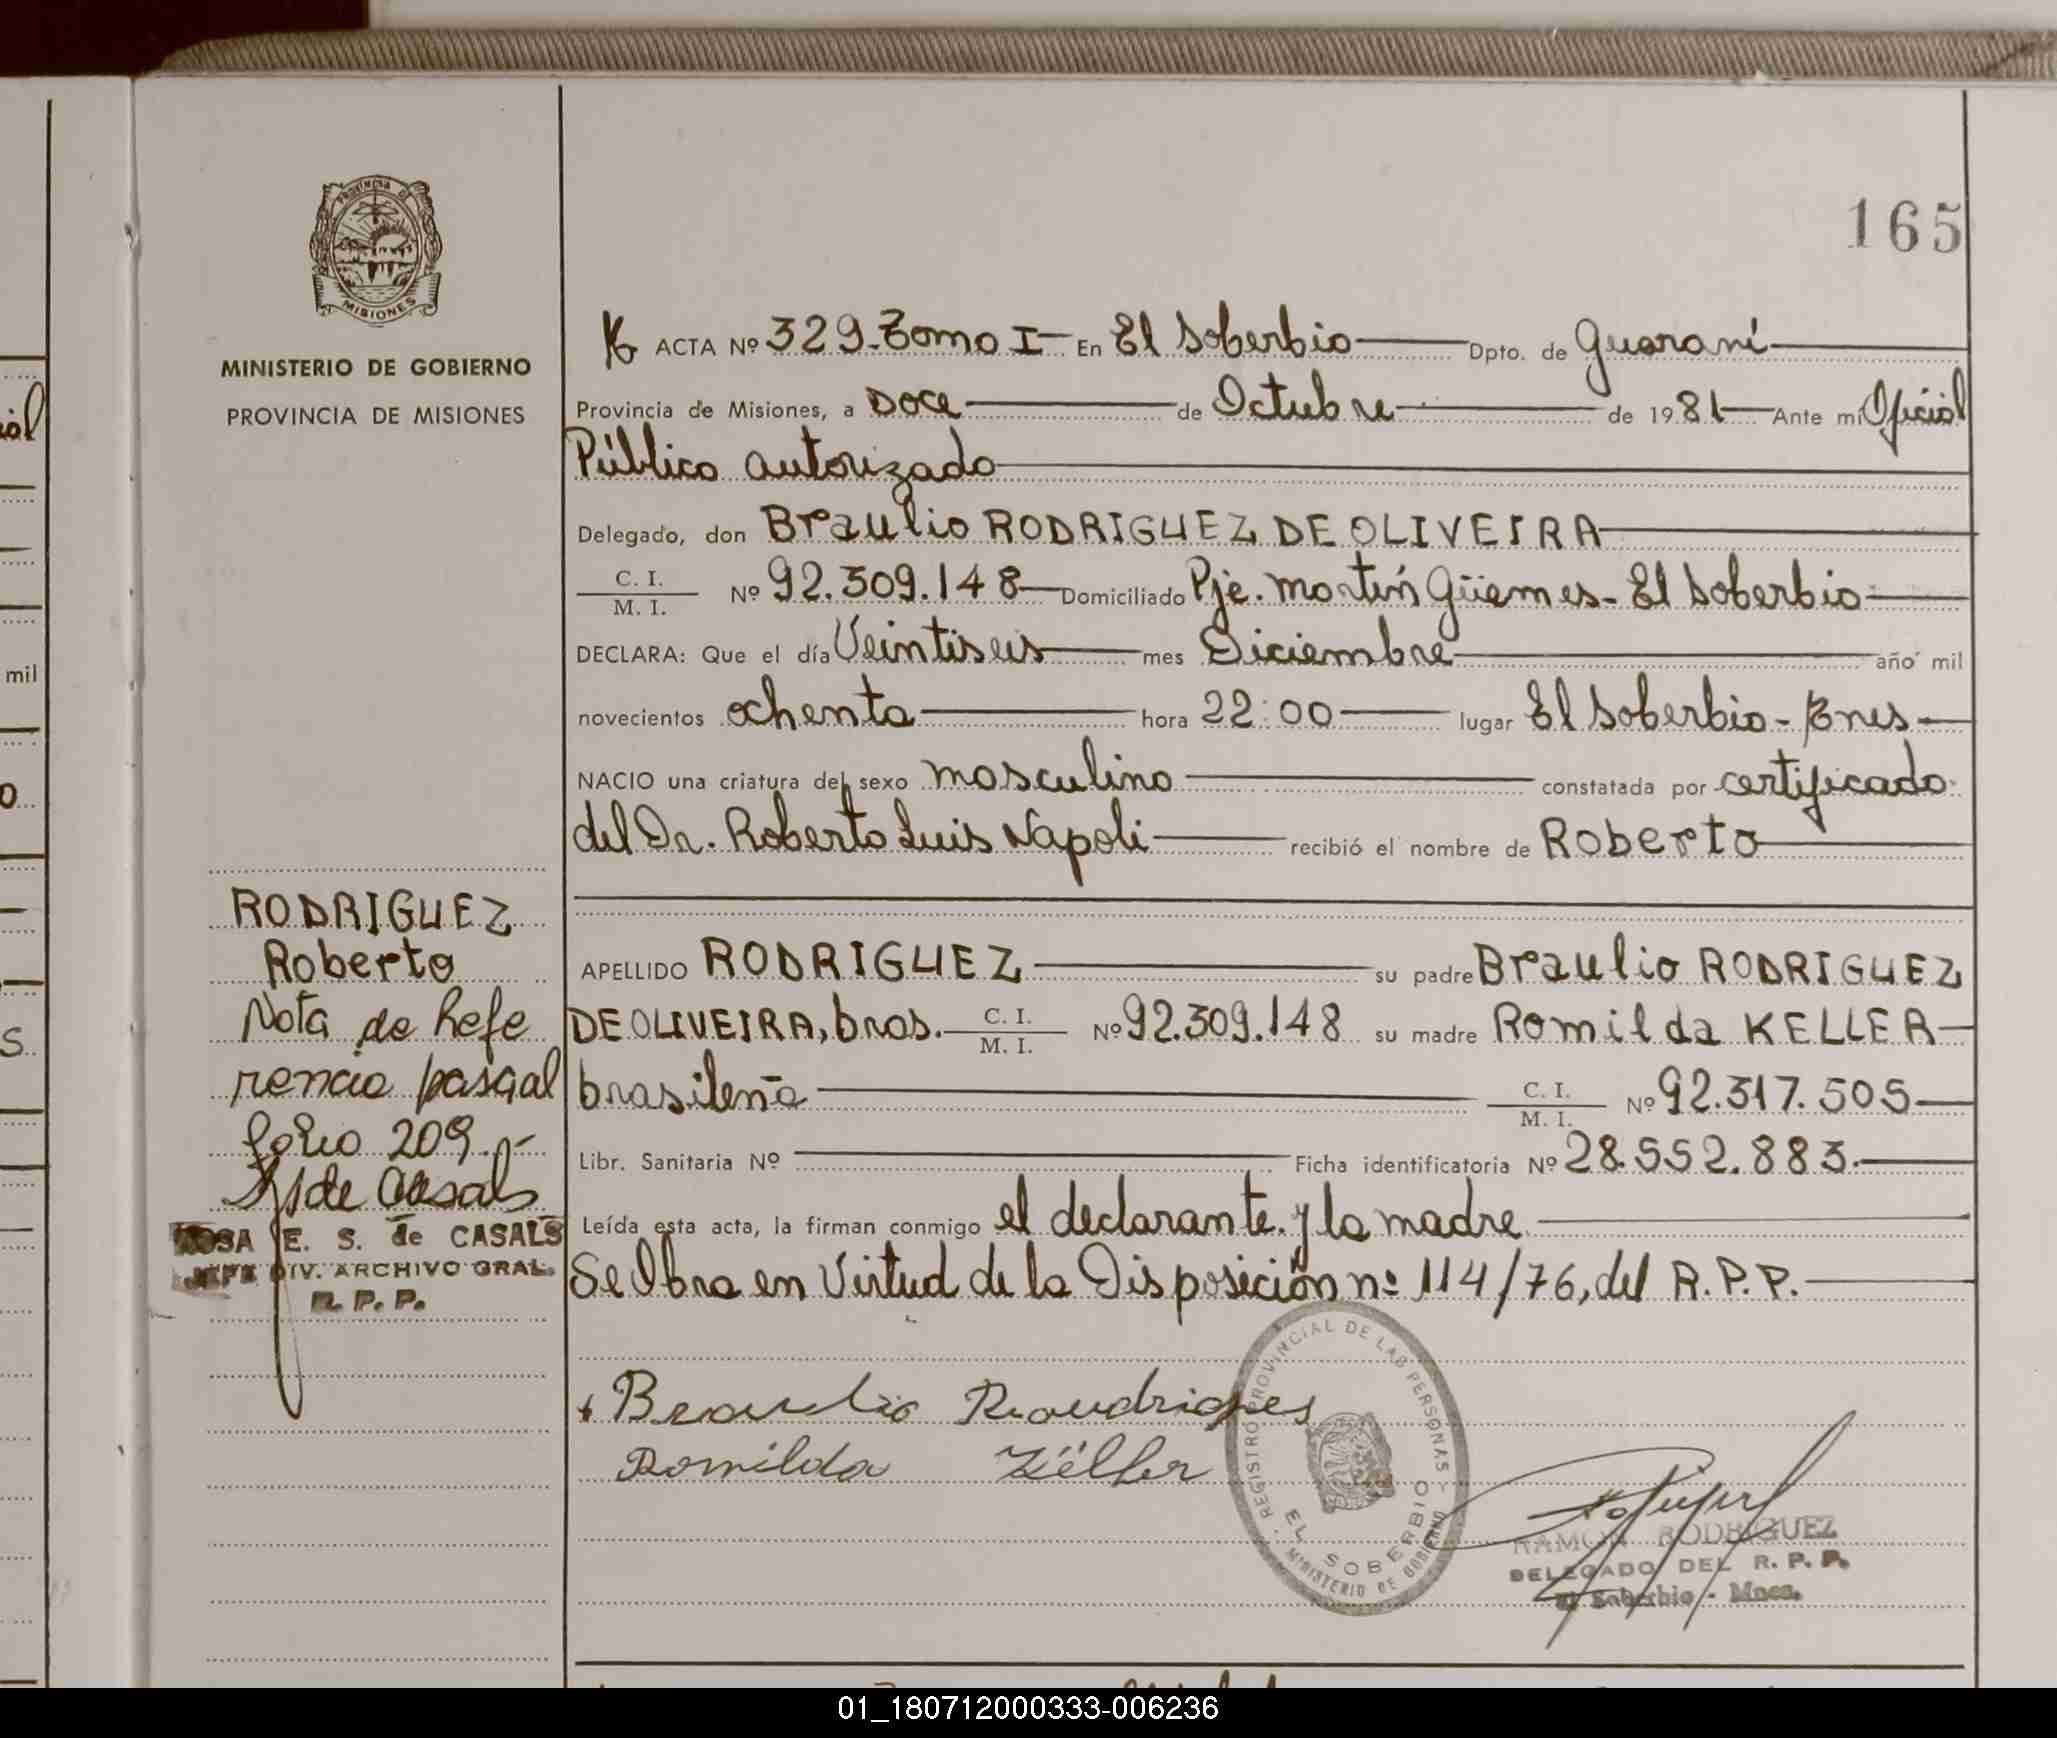 165
PROVINCIA DE
MISIONES
MINISTERIO DE GOBIERNO
PROVINCIA DE MISIONES
ACTA Nº 329-Tomo I- En El Soberbio Dpto. de Guaraní
Provincia de Misiones, a Doce de Octubre de 1981 Ante mí Oficial
Público autorizado
Delegado, don Braulio RODRIGUEZ DE OLIVEIRA
C. I.
M. I. Nº 92.309.148 Domiciliado Pje. Martín Güemes- El Soberbio
DECLARA: Que el día Veintiseis mes Diciembre año mil
novecientos ochenta hora 22:00 lugar El Soberbio-
NACIO una criatura del sexo masculino constatada por certificado
del Dr. Roberto Luis Napoli recibió el nombre de Roberto
APELLIDO RODRIGUEZ su padre Braulio RODRIGUEZ
DE OLIVEIRA, bras. C. I.
M. I. Nº 92.309.148 su madre Romilda KELLER
brasileña C. I.
M. I. Nº 92.317.505
Libr. Sanitaria Nº Ficha identificatoria Nº 28.552.883.
Leída esta acta, la firman conmigo el declarante. y la madre
Se Obra en Virtud de la Disposición nº 114/76, del R.P.P.
RODRIGUEZ
Roberto
Nota de Refe
rencia pasa al
folio 209.-
de Casals
ROSA E. S. de CASALS
JEFE DIV. ARCHIVO GRAL.
R. P. P.
Braulio Roudrigues
Romilda Zëller
REGISTRO PROVINCIAL DE LAS PERSONAS
EL SOBERBIO
MINISTERIO DE GOBIERNO
RAMON RODRIGUEZ
DELEGADO DEL R. P. P.
El Soberbio - Mnes.
mil
01_180712000333-006236